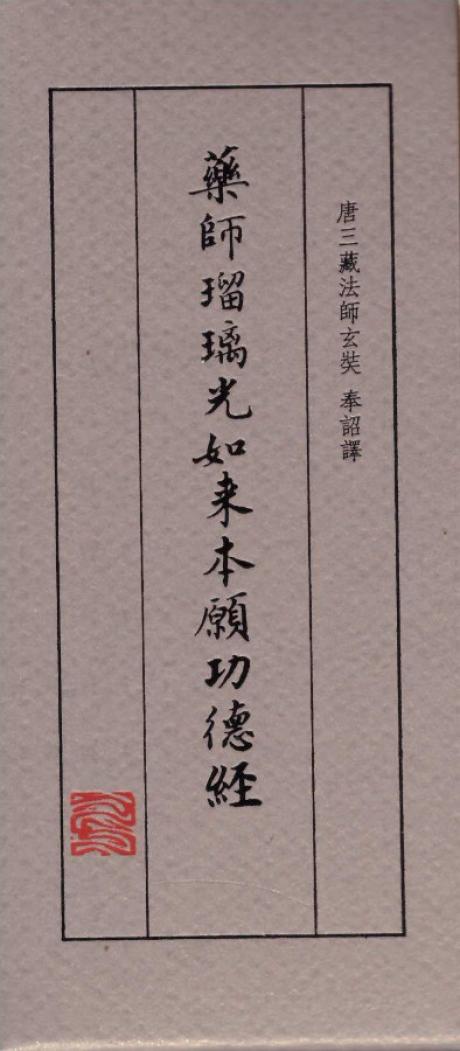 唐三藏法師玄奘 奉詔譯
藥師瑠璃光如来本願功德経